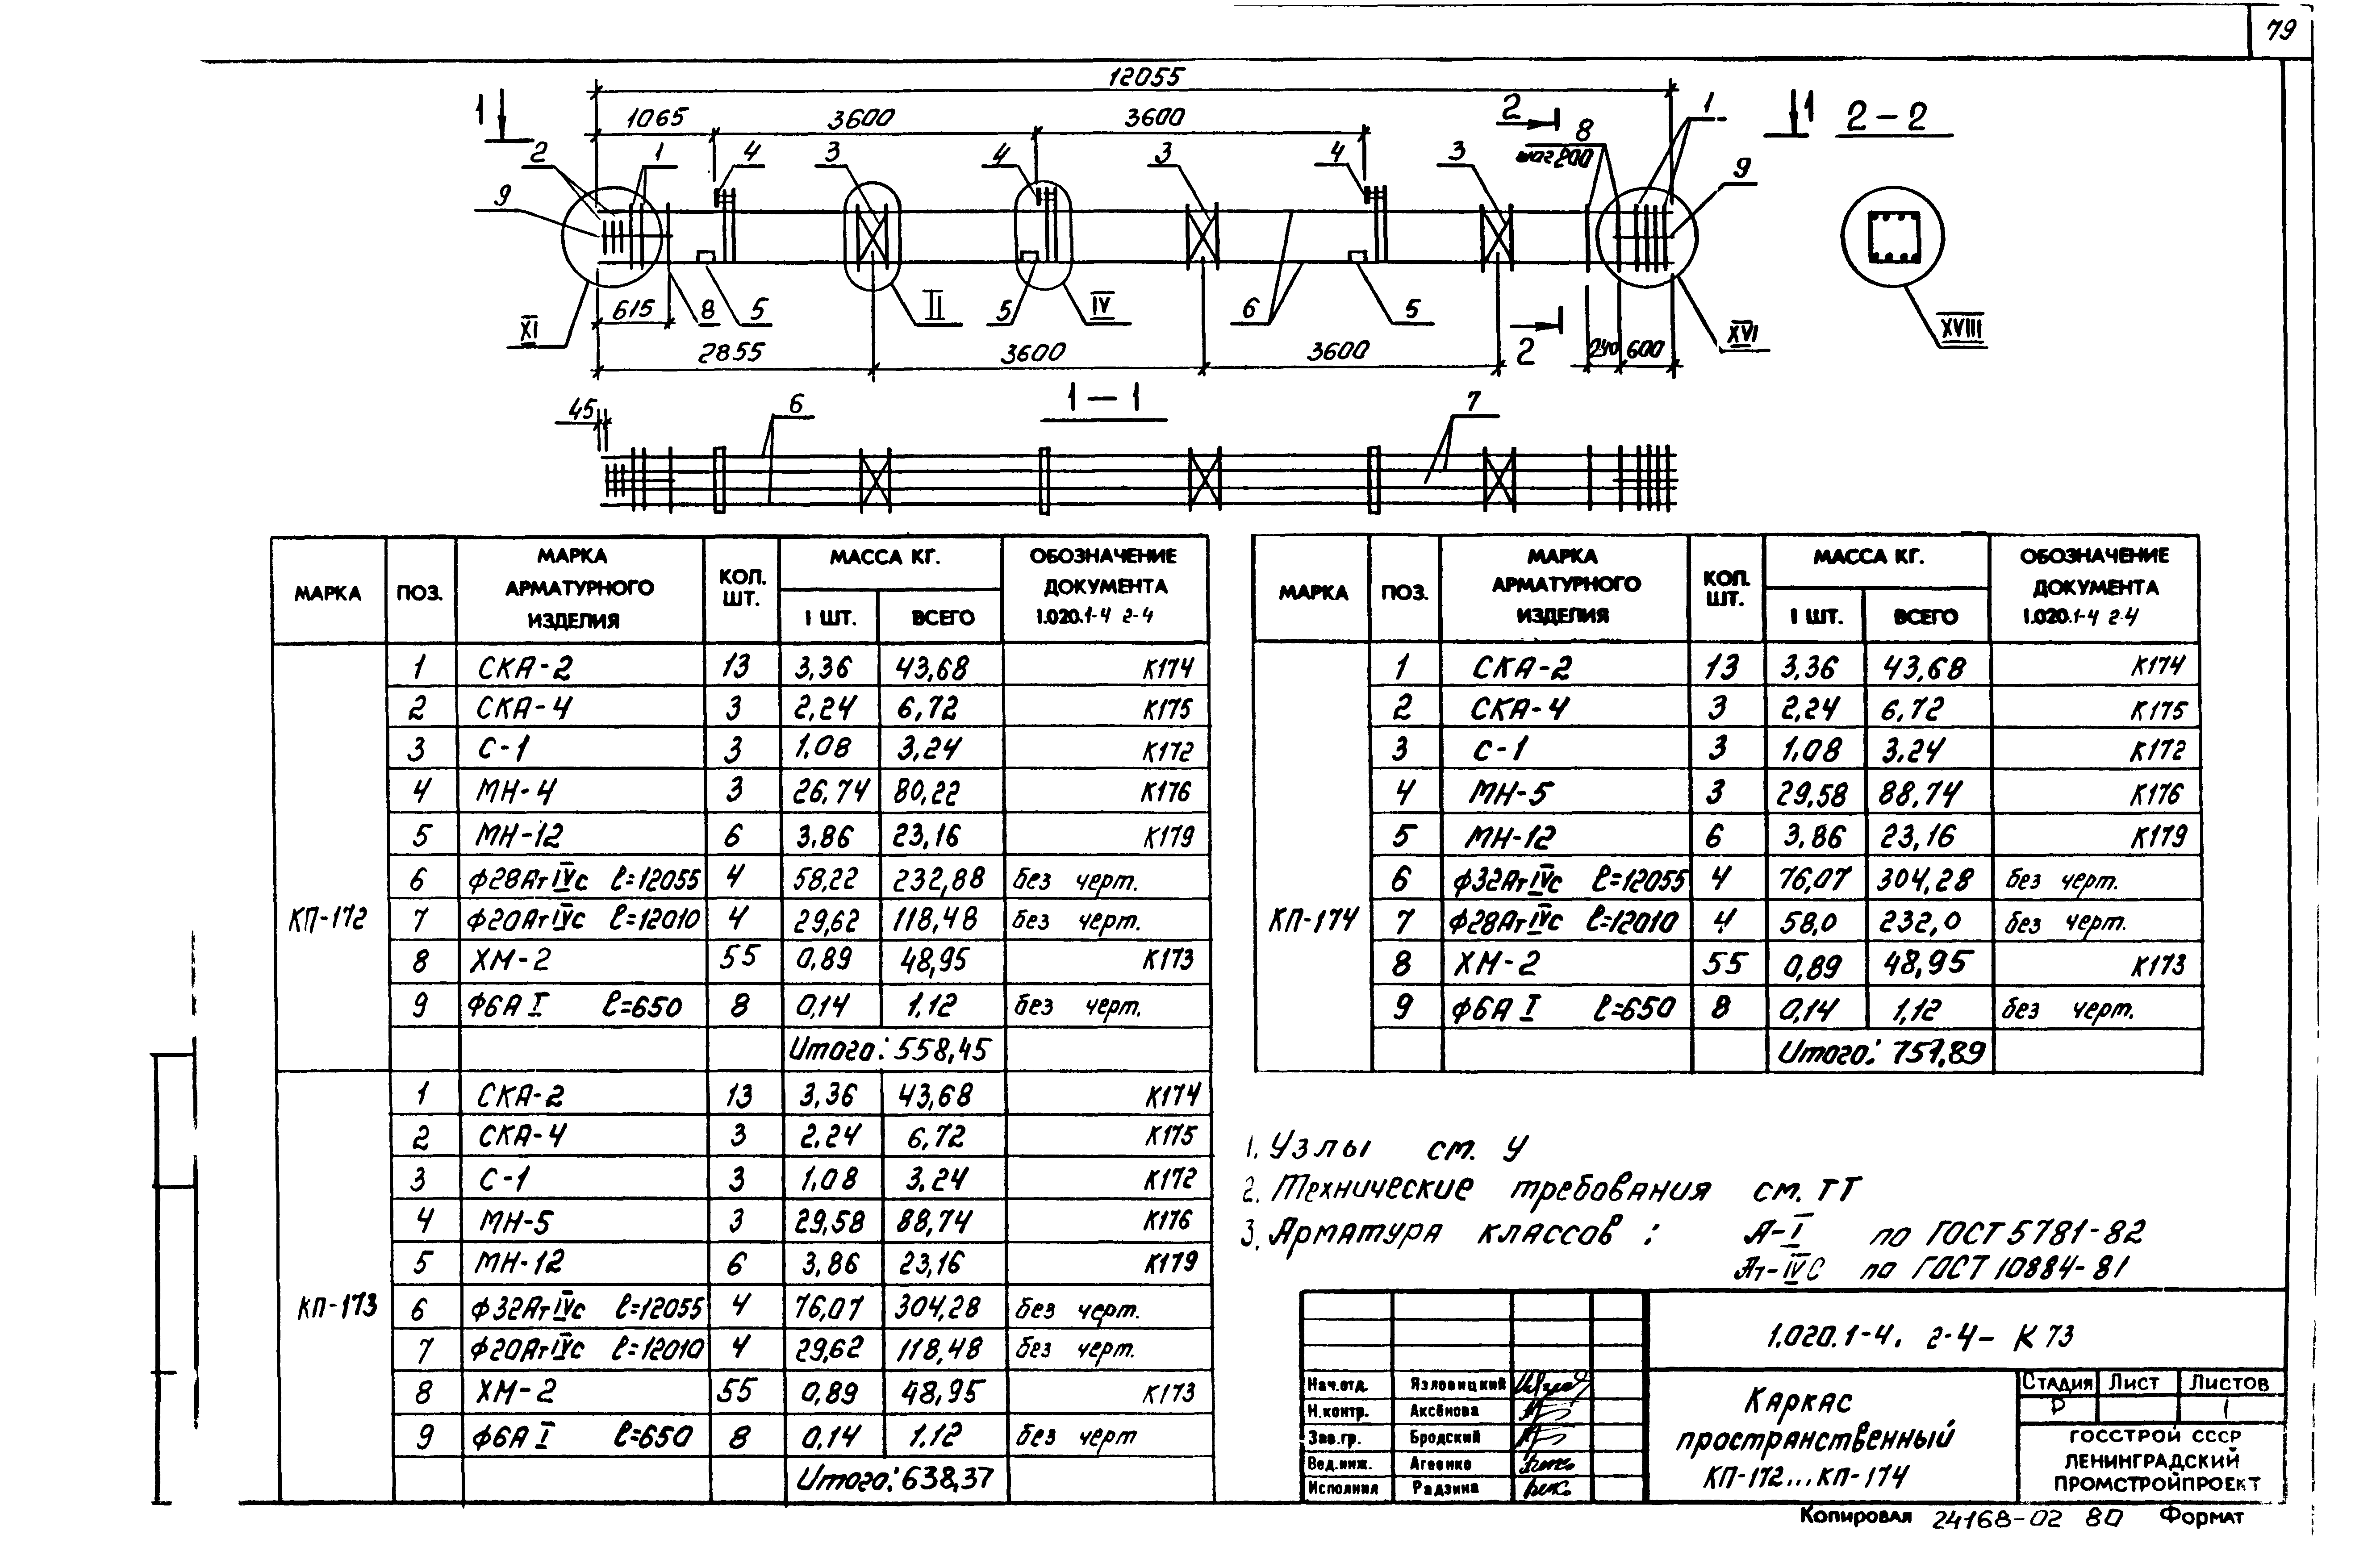 79
12055
1065 3600 3600
1 2 1 4 3 4 3 4 3 2 8 шаг200 1 9 1 2-2
9
XI 615 8 5 II 5 IV 6 5 2 XVI XVIII
2855 3600 3600 240 600
45 6 1-1 7
МАРКА ПОЗ. МАРКА АРМАТУРНОГО ИЗДЕЛИЯ КОЛ. ШТ. МАССА КГ. 1 ШТ. ВСЕГО ОБОЗНАЧЕНИЕ ДОКУМЕНТА 1.020.1-4 2-4
КП-172
1 СКА-2 13 3,36 43,68 К174
2 СКА-4 3 2,24 6,72 К175
3 С-1 3 1.08 3,24 К172
4 МН-4 3 26,74 80,22 К176
5 МН-12 6 3,86 23,16 К179
6 ф28АтIVс ℓ=12055 4 58,22 232,88 без черт.
7 ф20АтIVс ℓ=12010 4 29,62 118,48 без черт.
8 ХМ-2 55 0,89 48,95 К173
9 ф6АI ℓ=650 8 0,14 1.12 без черт.
Итого: 558,45
КП-173
1 СКА-2 13 3,36 43,68 К174
2 СКА-4 3 2,24 6,72 К175
3 С-1 3 1,08 3,24 К172
4 МН-5 3 29,58 88,74 К176
5 МН-12 6 3,86 23,16 К179
6 ф32АтIVс ℓ=12055 4 76,07 304,28 без черт.
7 ф20АтIVс ℓ=12010 4 29,62 118,48 без черт.
8 ХМ-2 55 0,89 48,95 К173
9 ф6АI ℓ=650 8 0,14 1.12 без черт
Итого: 638,37
МАРКА ПОЗ. МАРКА АРМАТУРНОГО ИЗДЕЛИЯ КОЛ. ШТ. МАССА КГ. 1 ШТ. ВСЕГО ОБОЗНАЧЕНИЕ ДОКУМЕНТА 1.020.1-4 2-4
КП-174
1 СКА-2 13 3,36 43,68 К174
2 СКА-4 3 2,24 6,72 К175
3 С-1 3 1,08 3,24 К172
4 МН-5 3 29,58 88,74 К176
5 МН-12 6 3,86 23,16 К179
6 ф32АтIVс ℓ=12055 4 76,07 304,28 без черт.
7 ф28АтIVс ℓ=12010 4 58,0 232,0 без черт.
8 ХМ-2 55 0,89 48,95 К173
9 ф6АI ℓ=650 8 0,14 1,12 без черт.
Итого: 751,89
1. Узлы см. У
2. Технические требования см. ТТ
3. Арматура классов: А-I по ГОСТ 5781-82
Ат-IVС по ГОСТ 10884-81
1.020.1-4. 2-4- К 73
Нач.отд. Язловицкий
Н.контр. Аксёнова
Зав.гр. Бродский
Вед.инж. Агеенко
Исполнил Радзина
Каркас
пространственный
КП-172...КП-174
Стадия Лист Листов
Р 1
ГОССТРОЙ СССР
ЛЕНИНГРАДСКИЙ
ПРОМСТРОЙПРОЕКТ
Копировал 24168-02 80 Формат